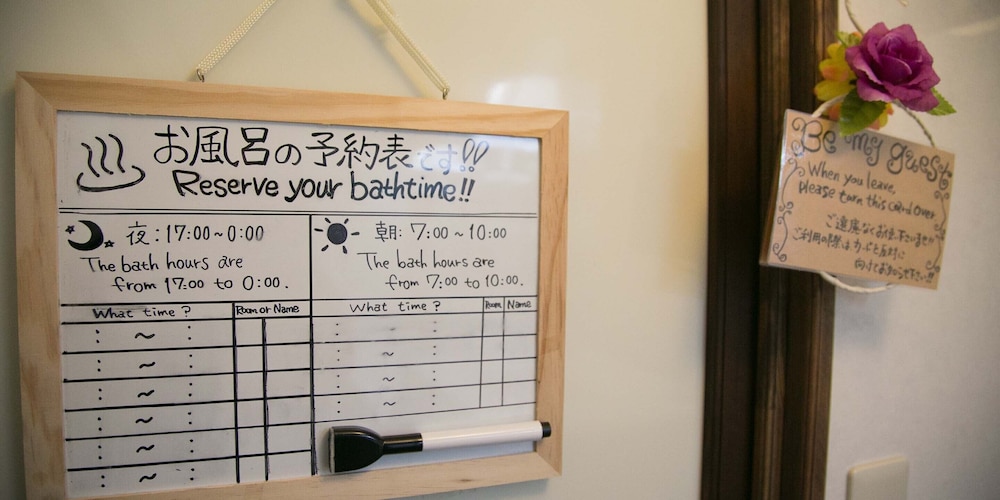 お風呂の予約表です!!
Reserve your bathtime!!
夜:17:00~0:00
The bath hours are
from 17:00 to 0:00.
What time?
Room or Name
: ~ :
: ~ :
: ~ :
: ~ :
: ~ :
: ~ :
朝:7:00~10:00
The bath hours are
from 7:00 to 10:00.
What time?
Room
Name
: ~ :
: ~ :
: ~ :
: ~ :
Be my guest
When you leave,
please turn this card over
ご遠慮なくお使い下さいませ!!
ご利用の際はカードを反対に
向けてお知らせ下さい!!